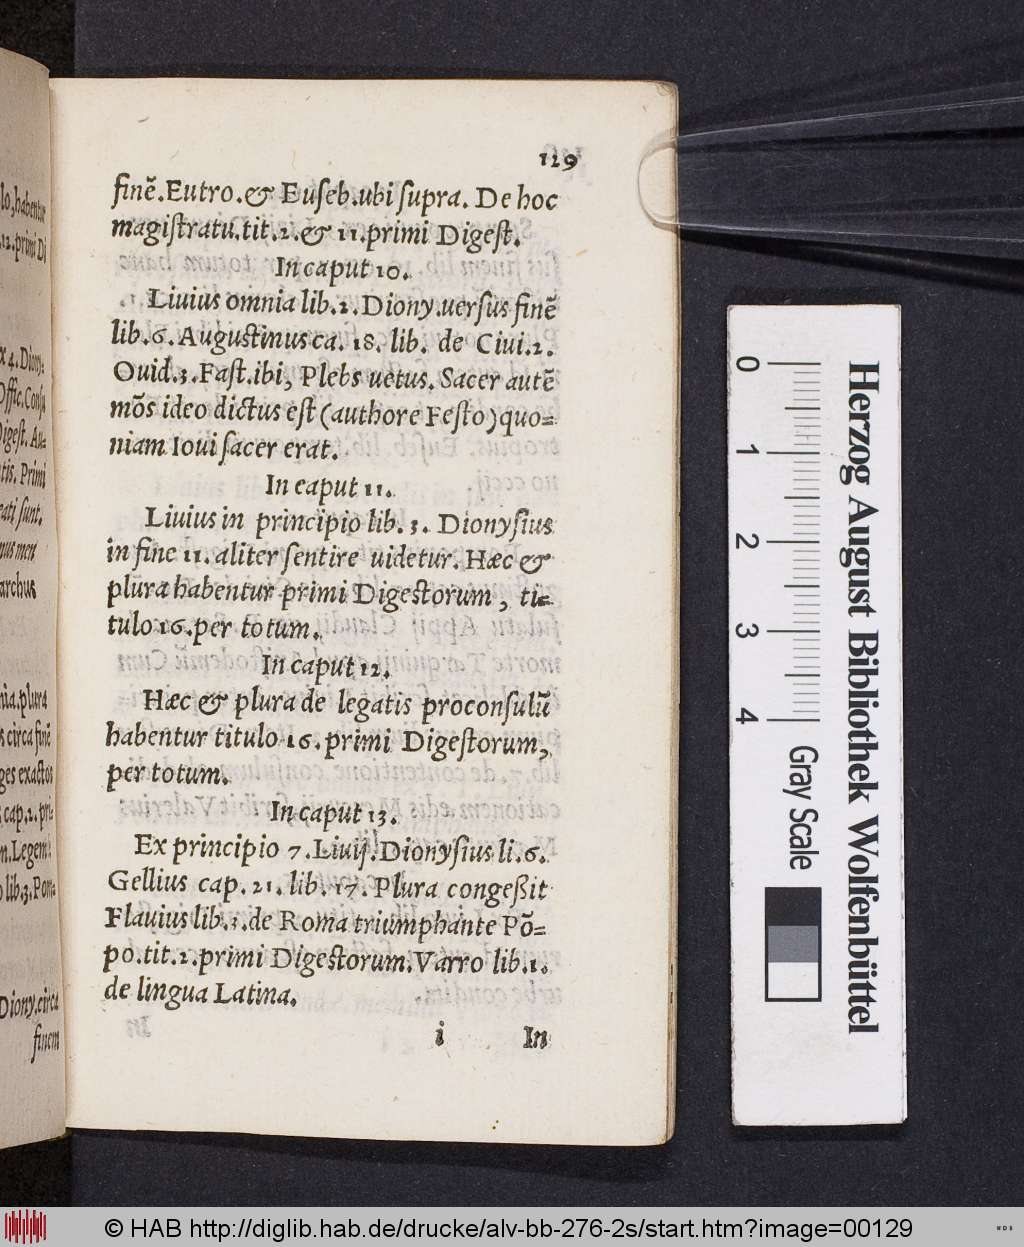 129
finẽ.Eutro.& Euſeb.ubi ſupra. De hoc
magiſtratu.tit.2.& 11.primi Digeſt.
In caput 10.
Liuius omnia lib.2.Diony.uerſus finẽ
lib.6.Auguſtinus ca. 18. lib. de Ciui.2.
Ouid.3.Faſt.ibi, Plebs uetus. Sacer autẽ
mõs ideo dictus eſt (authore Feſto) quo=
niam Ioui ſacer erat.
In caput 11.
Liuius in principio lib. 3. Dionyſius
in fine 11. aliter ſentire uidetur. Hæc &
plura habentur primi Digeſtorum, ti=
tulo 16.per totum.
In caput 12.
Hæc & plura de legatis proconſulũ
habentur titulo 16.primi Digeſtorum,
per totum.
In caput 13.
Ex principio 7.Liuij.Dionyſius li.6.
Gellius cap.21.lib.17.Plura congeßit
Flauius lib.3.de Roma triumphante Põ=
po.tit.2.primi Digeſtorum.Varro lib.1.
de lingua Latina.
i In
lo, habentur
12.primi Di
x 4.Diony
Offic.Conſu
Digeſt. Au=
tis. Primi
eati ſunt.
mus men
archus
nia.plura
s circa finẽ
ges exactos
cap.2.pri=
m.Legem
o lib.3.Pom
Diony.circa
finem
0 1 2 3 4
Herzog August Bibliothek Wolfenbüttel
Gray Scale
© HAB http://diglib.hab.de/drucke/alv-bb-276-2s/start.htm?image=00129
WDB